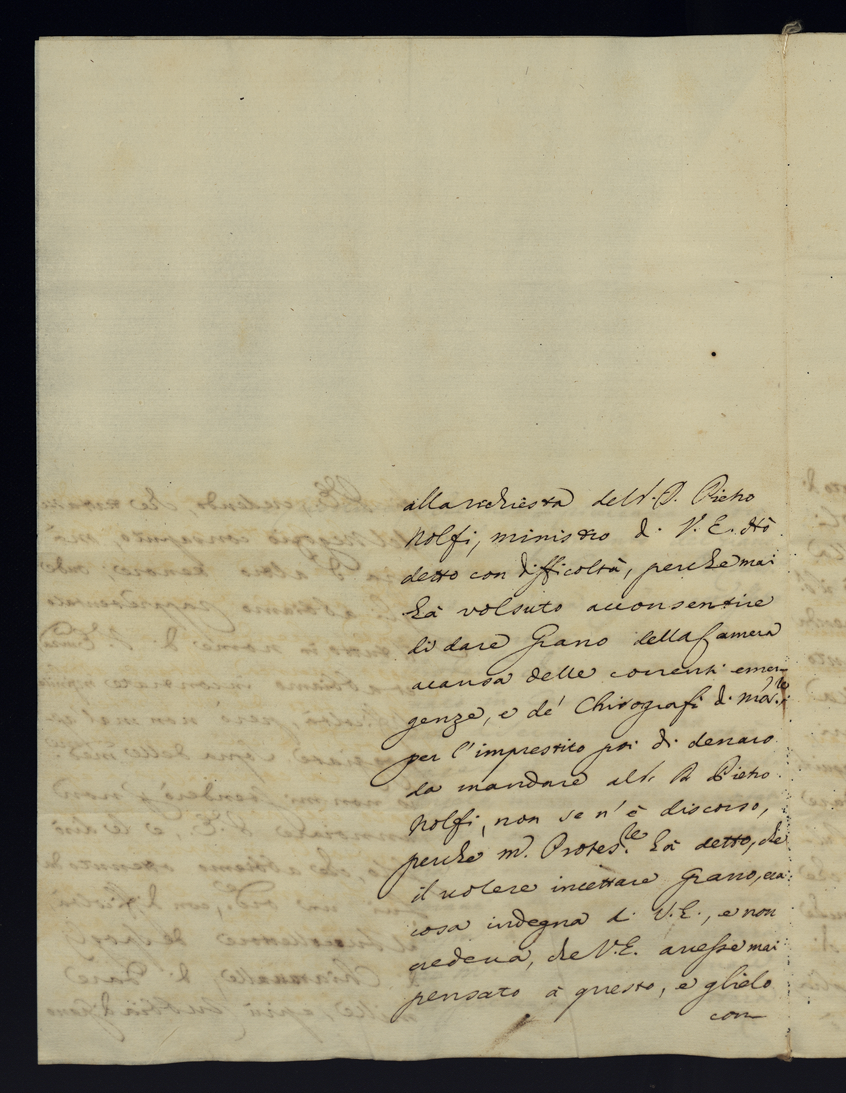 alla richiesta del S.r D. Pietro
Nolfi, ministro di V. E.
detto con difficoltà, perche mai
hà volsuto acconsentire
di dare Grano della Camera
a causa delle correnti emer-
genze, e de' Chirografi di
per l'imprestito poi di denaro
da mandare al S.r D. Pietro
Nolfi, non se n'è discorso,
perche m.r Protes.le hà detto, che
il volere incettare Grano, era
cosa indegna di V. E., e non
credeva, che V. E. avesse mai
pensato à questo, e glielo
con